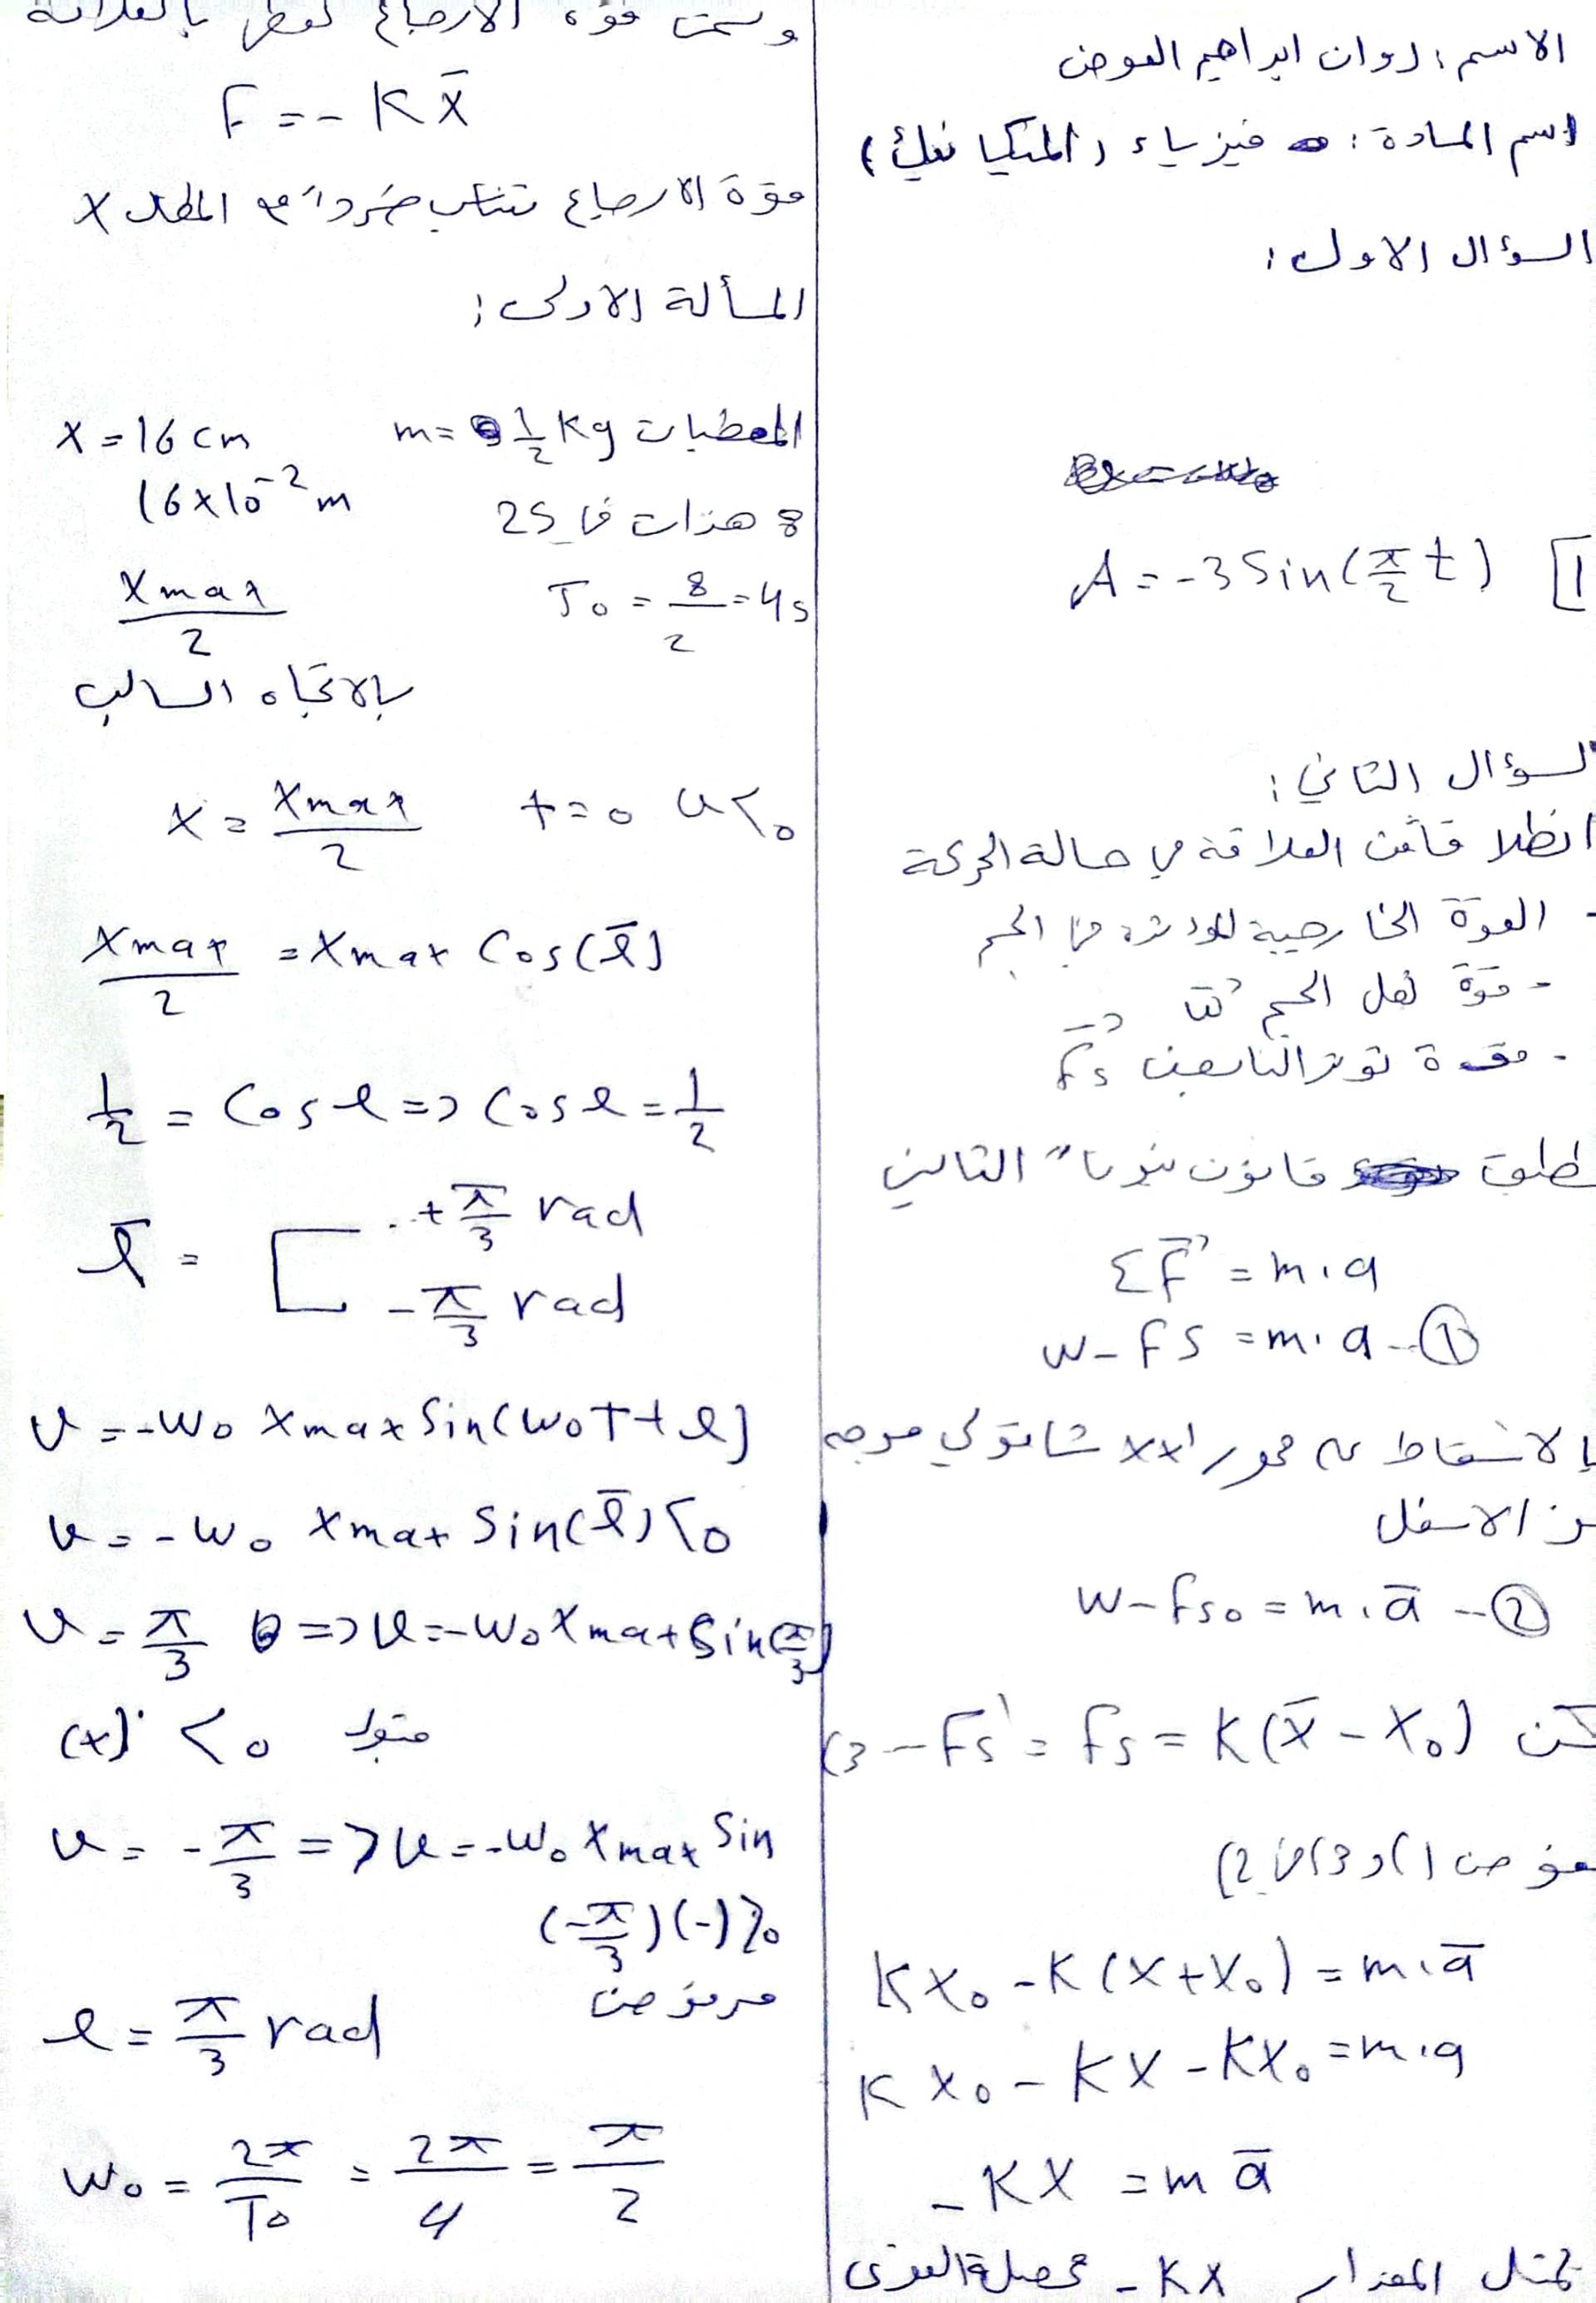 الاسم: روان ابراهيم العوض
اسم المادة: فيزياء (الميكانيك)
السؤال الاول:
1] A = -3 Sin(π/2 t)
السؤال الثاني:
العلاقة في حالة الحركة
- القوة الخارجية المؤثرة في الجسم
- قوة ثقل الجسم
- قوة توتر النابض Fs
قانون نيوتن الثاني
ΣF = m.a
w - fs = m.a -- ①
بالاسقاط على محور xx' شاقولي موجه
الاسفل
w - fso = m.ā -- ②
Fs' = fs = K(x̄ - X₀) -- (3
1) و 3) في 2)
KX₀ - K(X + X₀) = m.ā
KX₀ - KX - KX₀ = m.a
-KX = m ā
تمثل المقدار -KX محصلة القوى
وسميت قوة الارجاع تعطى بالعلاقة
F = -K x̄
قوة الارجاع تتناسب طردا مع المطال X
المسألة الاولى:
المعطيات m = 1/2 Kg X = 16 cm
8 هزات في 2S 16x10⁻² m
T₀ = 8/2 = 4s Xmax/2
بالاتجاه السالب
X = Xmax/2 t = 0 v < 0
Xmax/2 = Xmax Cos(φ̄)
1/2 = Cos φ => Cos φ = 1/2
φ̄ = [ +π/3 rad
-π/3 rad
v = -w₀ Xmax Sin(w₀T + φ)
v = -w₀ Xmax Sin(φ̄) < 0
v = π/3 => v = -w₀ Xmax Sin(π/3)
(x) < 0 مقبول
v = -π/3 => v = -w₀ Xmax Sin
(-π/3)(-) > 0
مرفوض
φ = π/3 rad
w₀ = 2π/T₀ = 2π/4 = π/2